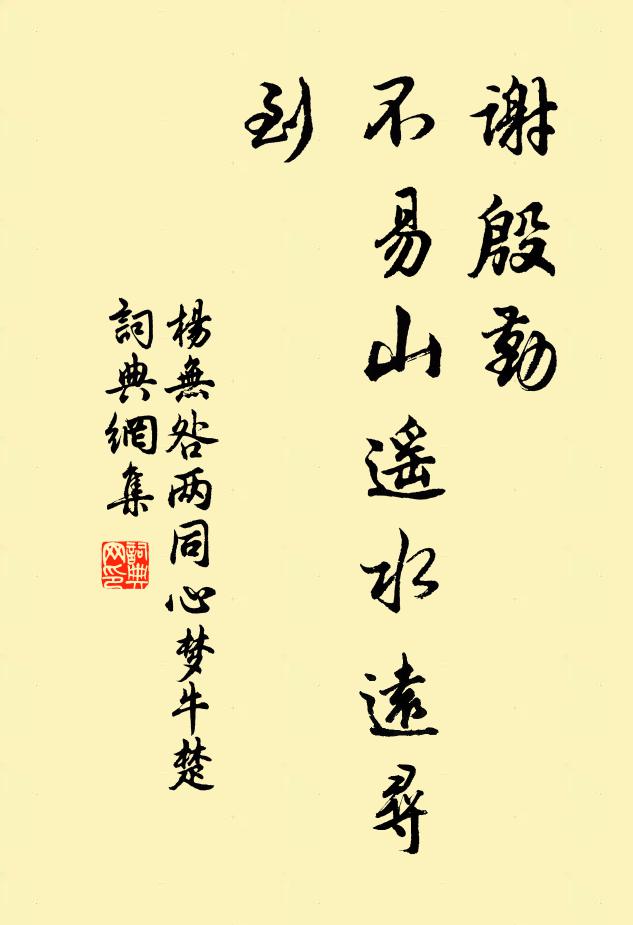 谢殷勤
不易山遥水遠尋
到
楊無咎两同心梦牛楚
詞典網集
詞典
网印